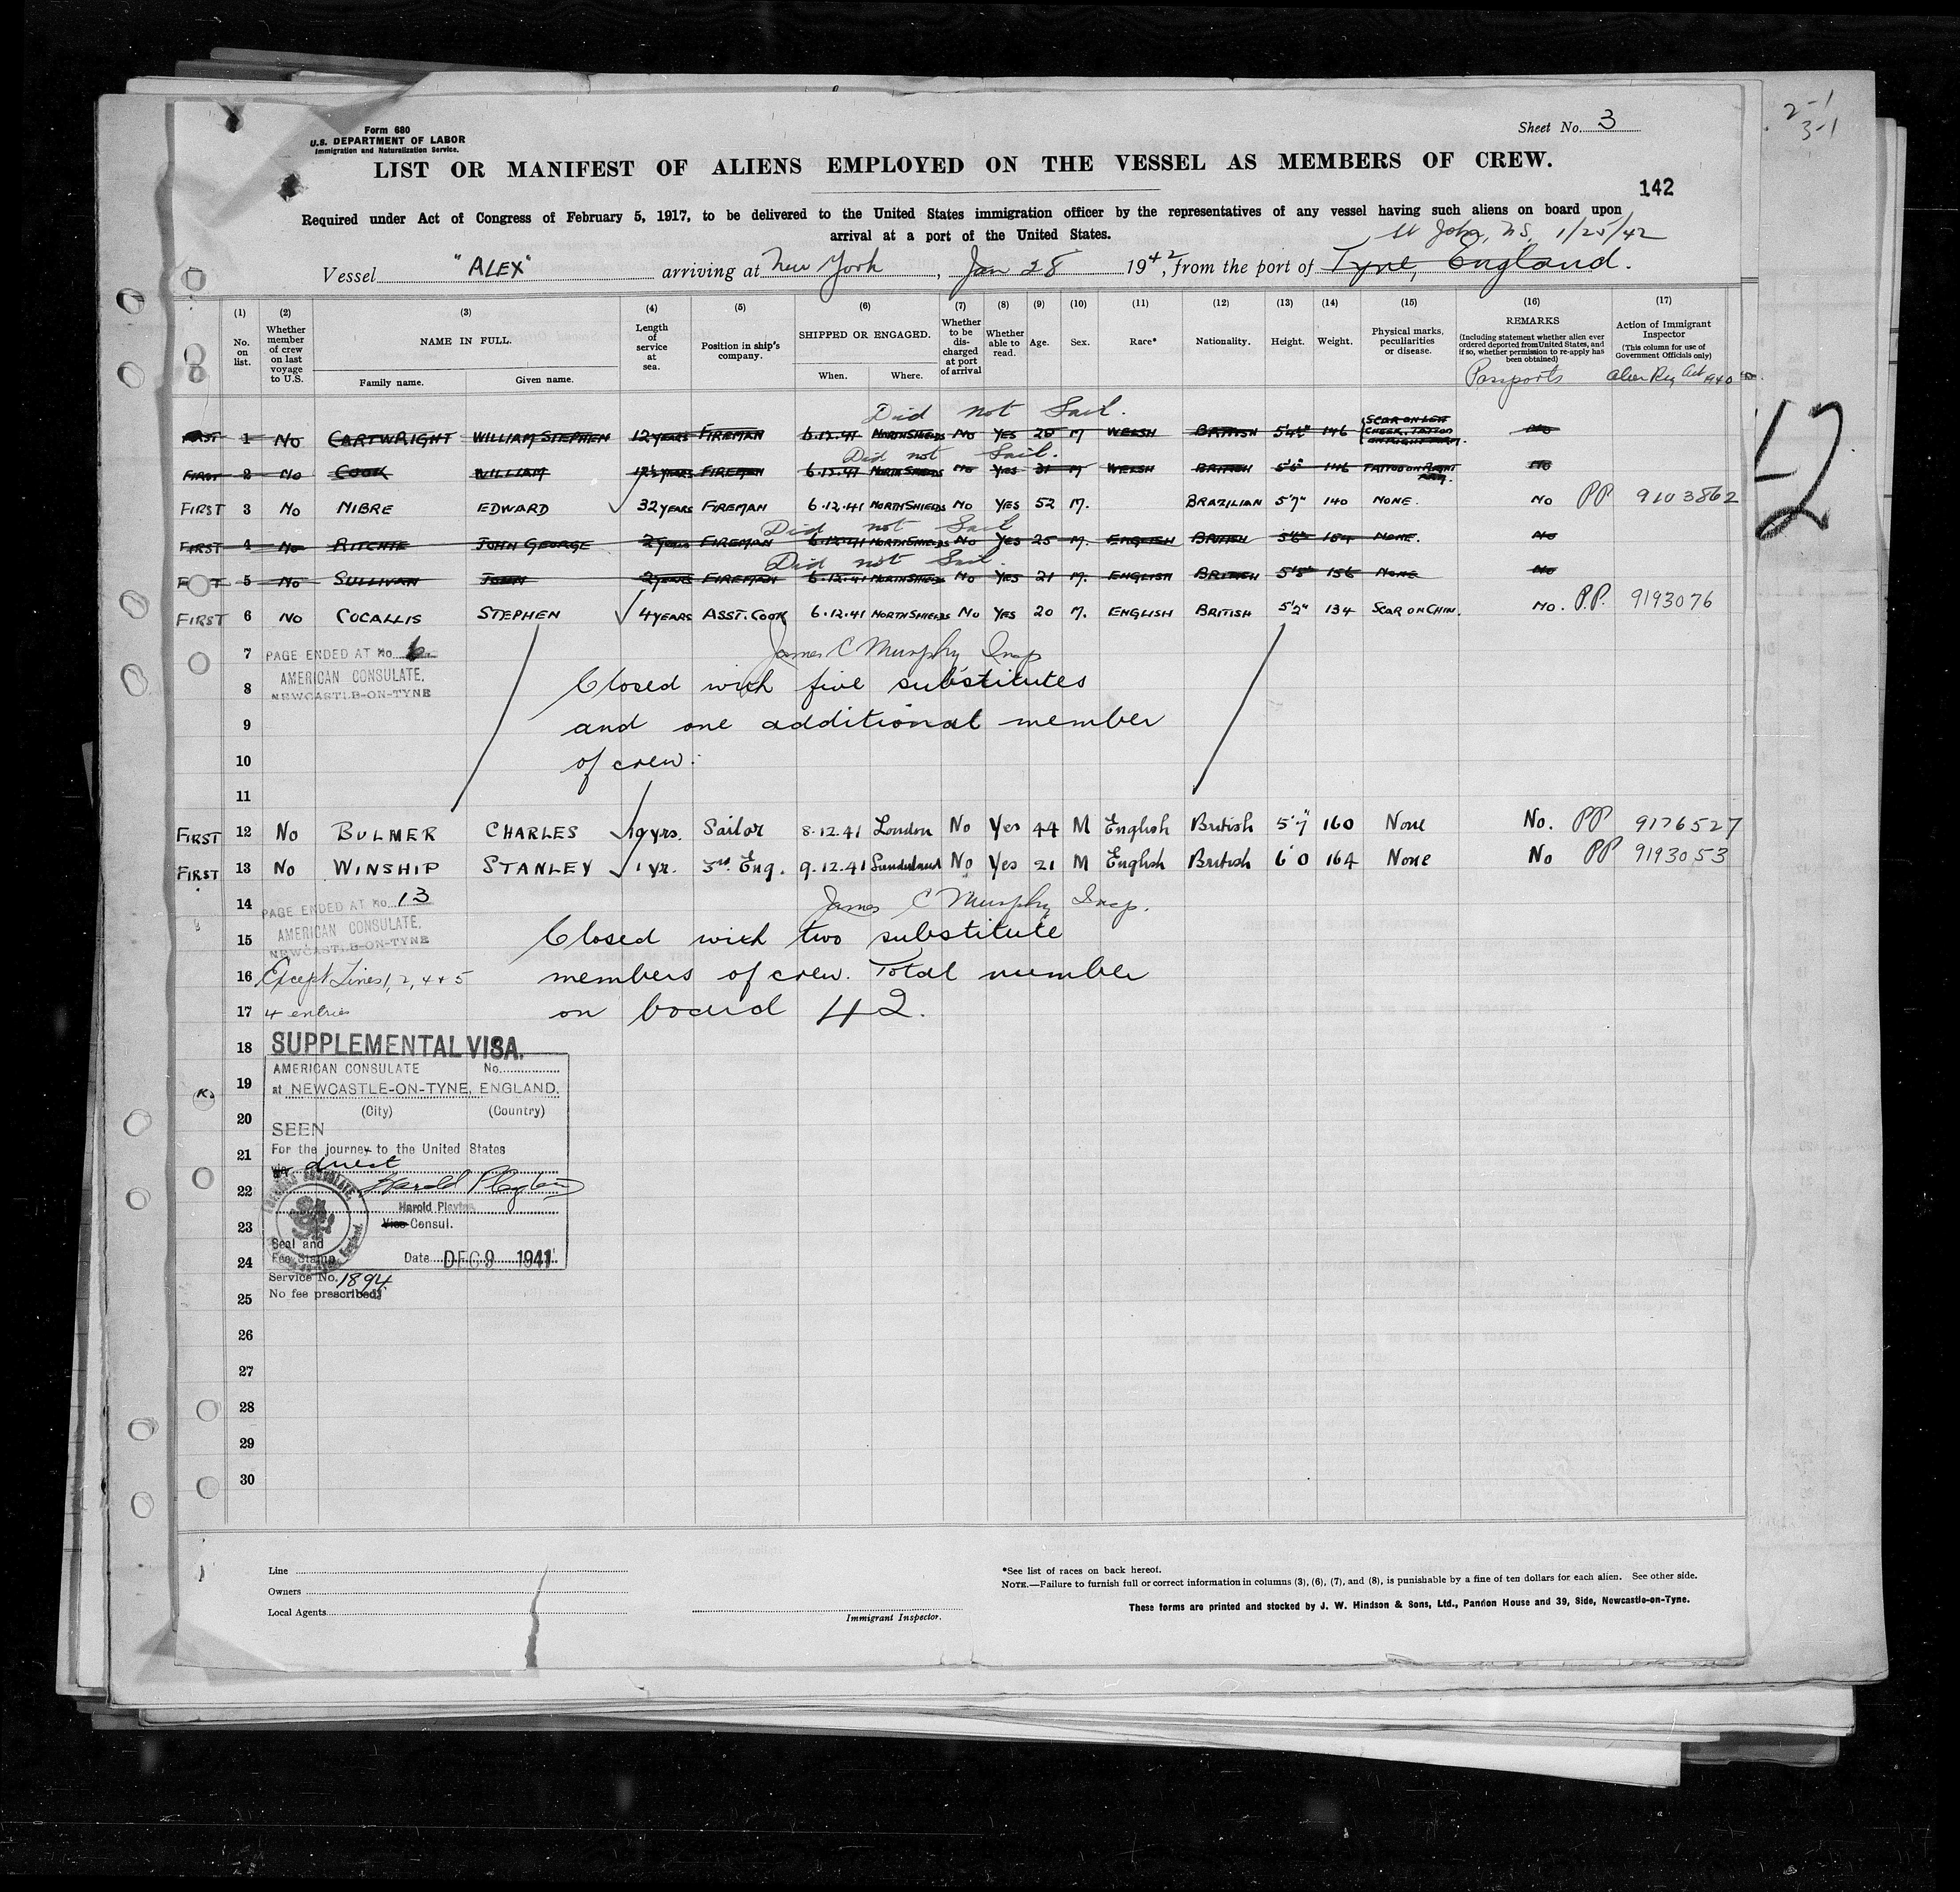 2-1
3-1
Form 680
U.S. DEPARTMENT OF LABOR
Immigration and Naturalization Service.
Sheet No. 3
LIST OR MANIFEST OF ALIENS EMPLOYED ON THE VESSEL AS MEMBERS OF CREW.
142
Required under Act of Congress of February 5, 1917, to be delivered to the United States immigration officer by the representatives of any vessel having such aliens on board upon
arrival at a port of the United States.
St John, NS, 1/25/42
Vessel "ALEX" arriving at New York, Jan 28 1942, from the port of Tyne, England.
(1) No. on list.
(2) Whether member of crew on last voyage to U.S.
(3) NAME IN FULL. Family name. Given name.
(4) Length of service at sea.
(5) Position in ship's company.
(6) SHIPPED OR ENGAGED. When. Where.
(7) Whether to be discharged at port of arrival
(8) Whether able to read.
(9) Age.
(10) Sex.
(11) Race*
(12) Nationality.
(13) Height.
(14) Weight.
(15) Physical marks, peculiarities or disease.
(16) REMARKS (Including statement whether alien ever ordered deported from United States, and if so, whether permission to re-apply has been obtained) Passports
(17) Action of Immigrant Inspector (This column for use of Government Officials only) Alien Reg Act 1940
Did not Sail.
FIRST 1 No CARTWRIGHT WILLIAM STEPHEN 12 YEARS FIREMAN 6.12.41 NORTH SHIELDS No YES 28 M WELSH BRITISH 5'4½" 146 SCAR ON LEFT CHEEK. TATTOO ON RIGHT ARM. No
Did not Sail.
FIRST 2 No COOK WILLIAM 12½ YEARS FIREMAN 6.12.41 NORTH SHIELDS No YES 31 M WELSH BRITISH 5'6" 146 TATTOO ON RIGHT ARM. No
FIRST 3 No NIBRE EDWARD 32 YEARS FIREMAN 6.12.41 NORTH SHIELDS No YES 52 M. BRAZILIAN 5'7" 140 NONE. No PP 9103862
Did not Sail
FIRST 4 No RITCHIE JOHN GEORGE 2 YEARS FIREMAN 6.12.41 NORTH SHIELDS No YES 25 M. ENGLISH BRITISH 5'6" 154 NONE. No
Did not Sail.
FIRST 5 No SULLIVAN JOHN 2 YEARS FIREMAN 6.12.41 NORTH SHIELDS No YES 21 M. ENGLISH BRITISH 5'5" 156 NONE No
FIRST 6 No COCALLIS STEPHEN 4 YEARS ASST. COOK 6.12.41 NORTH SHIELDS No YES 20 M. ENGLISH BRITISH 5'2" 134 SCAR ON CHIN. No. P.P. 9193076
7 PAGE ENDED AT No. 6 James C Murphy Insp
AMERICAN CONSULATE,
8 NEWCASTLE-ON-TYNE Closed with five substitutes
9 and one additional member
10 of crew.
11
FIRST 12 No BULMER CHARLES 19 yrs. Sailor 8.12.41 London No Yes 44 M English British 5'7" 160 None No. PP 9176527
FIRST 13 No WINSHIP STANLEY 1 yr. 3rd Eng. 9.12.41 Sunderland No Yes 21 M English British 6'0 164 None No PP 9193053
14 PAGE ENDED AT No. 13 James C Murphy Insp.
AMERICAN CONSULATE,
15 NEWCASTLE-ON-TYNE Closed with two substitute
16 Except Lines 1, 2, 4 + 5 members of crew. Total number
17 4 entries on board 42.
18 SUPPLEMENTAL VISA.
AMERICAN CONSULATE No.
19 at NEWCASTLE-ON-TYNE, ENGLAND.
(City) (Country)
20 SEEN
21 For the journey to the United States
via direct
22 Harold Playter
Harold Playter
23 Vice Consul.
Seal and
24 Fee Stamp Date DEC 9 1941
Service No. 1894
25 No fee prescribed
26
27
28
29
30
42
Line
Owners
Local Agents
Immigrant Inspector.
*See list of races on back hereof.
NOTE.—Failure to furnish full or correct information in columns (3), (6), (7), and (8), is punishable by a fine of ten dollars for each alien. See other side.
These forms are printed and stocked by J. W. Hindson & Sons, Ltd., Pandon House and 39, Side, Newcastle-on-Tyne.